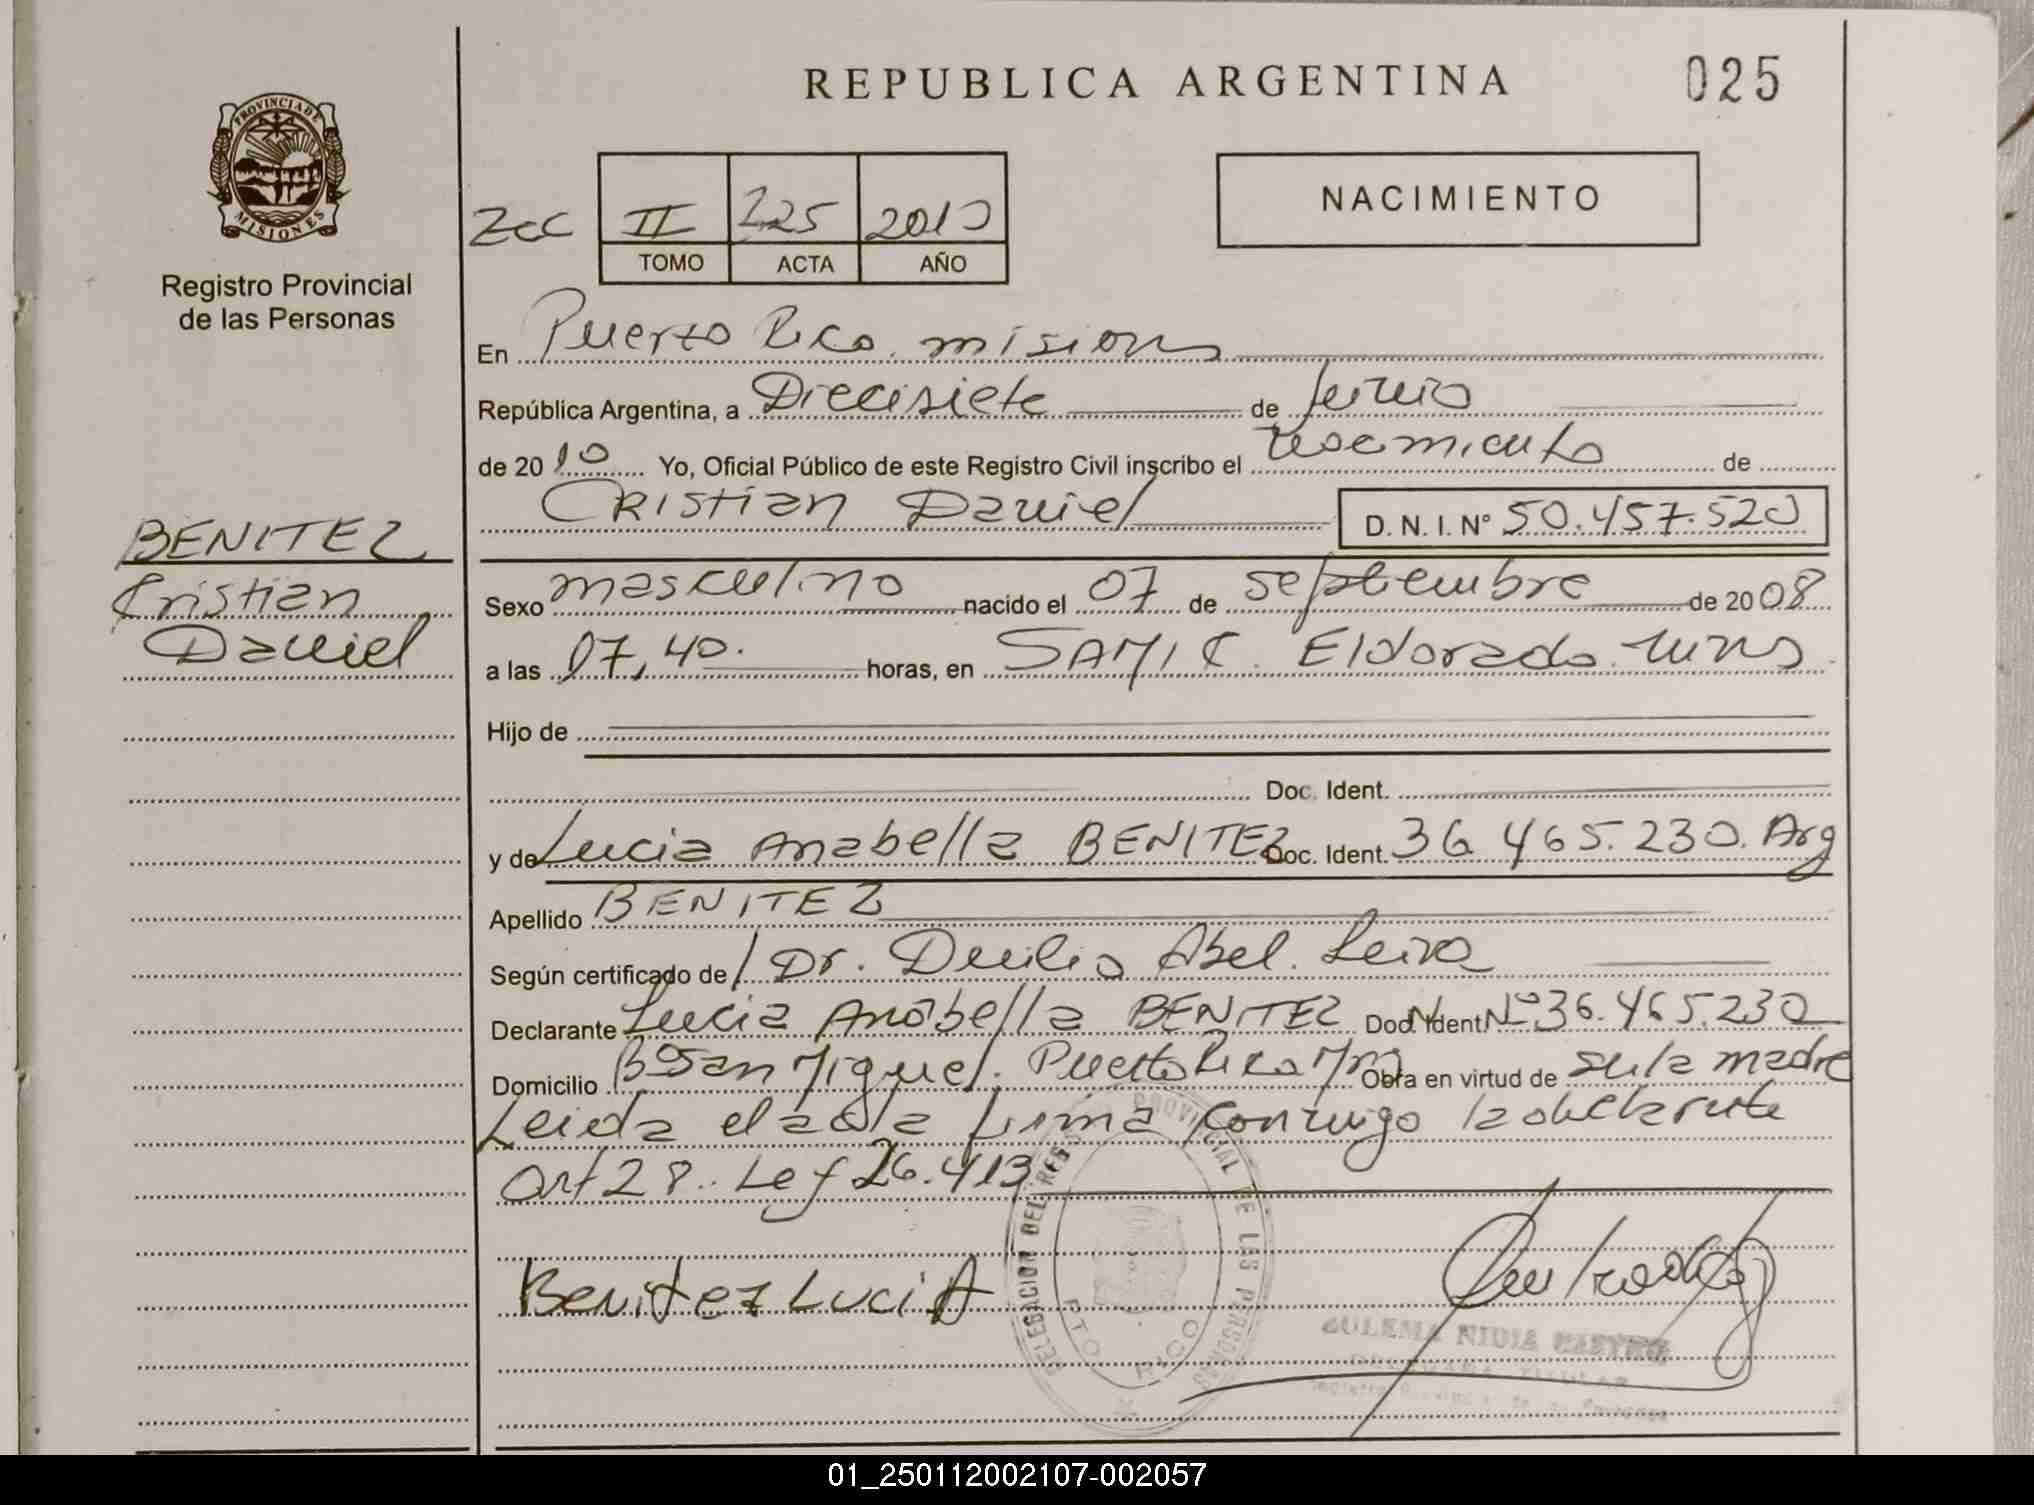 REPUBLICA ARGENTINA
025
PROVINCIA DE
MISIONES
Registro Provincial
de las Personas
NACIMIENTO
II 225 2010
TOMO ACTA AÑO
En Puerto Rico misiones
República Argentina, a Diecisiete de Junio
de 2010 Yo, Oficial Público de este Registro Civil inscribo el nacimiento de
Cristian Daniel D.N.I.N° 50.457.520
BENITEZ
Cristian
Daniel
Sexo masculino nacido el 07 de septiembre de 2008
a las 07,40. horas, en SAMIC. Eldorado. Mnes
Hijo de
Doc. Ident.
y de Lucia Anabella BENITEZ Doc. Ident. 36.465.230. Arg
Apellido BENITEZ
Según certificado de Dr. Duilio Abel. Leiva
Declarante Lucia Anabella BENITEZ Doc. Ident N° 36.465.230
Domicilio B° San Miguel. Puerto Rico Mns Obra en virtud de ser la madre
Leida el acta firma conmigo la declarante
Art 28. Ley 26.413
DELEGACION DEL REG. PROVINCIAL DE LAS PERSONAS
PTO. RICO
Benitez LuciA
ZULEMA NIDIA CASTRO
DELEGADA TITULAR
01_250112002107-002057